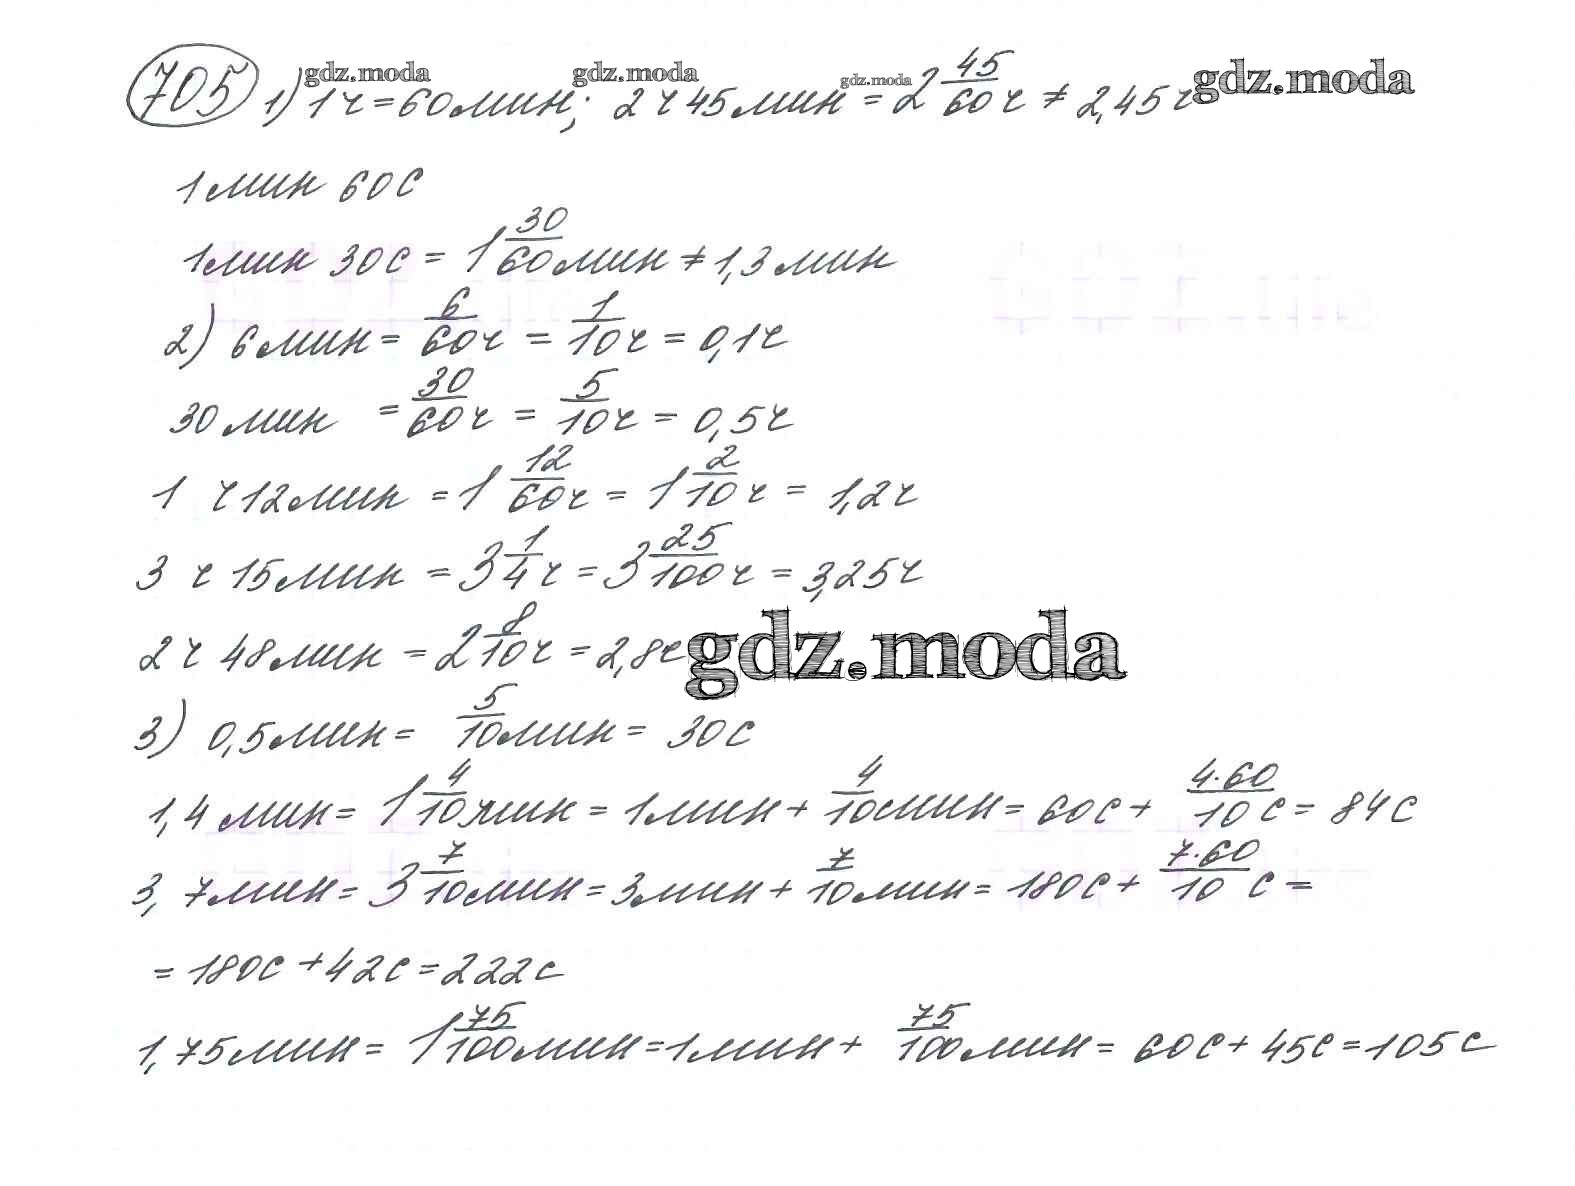 705 1) 1ч = 60мин; 2ч 45мин = 2 45/60 ч ≠ 2,45ч
gdz.moda gdz.moda gdz.moda gdz.moda
1мин 60с
1мин 30с = 1 30/60 мин ≠ 1,3мин
2) 6мин = 6/60 ч = 1/10 ч = 0,1ч
30мин = 30/60 ч = 5/10 ч = 0,5ч
1 ч 12мин = 1 12/60 ч = 1 2/10 ч = 1,2ч
3 ч 15мин = 3 1/4 ч = 3 25/100 ч = 3,25ч
2ч 48мин = 2 8/10 ч = 2,8ч
gdz.moda
3) 0,5мин = 5/10 мин = 30с
1,4мин = 1 4/10 мин = 1мин + 4/10 мин = 60с + 4·60/10 с = 84с
3,7мин = 3 7/10 мин = 3мин + 7/10 мин = 180с + 7·60/10 с =
= 180с + 42с = 222с
1,75мин = 1 75/100 мин = 1мин + 75/100 мин = 60с + 45с = 105с